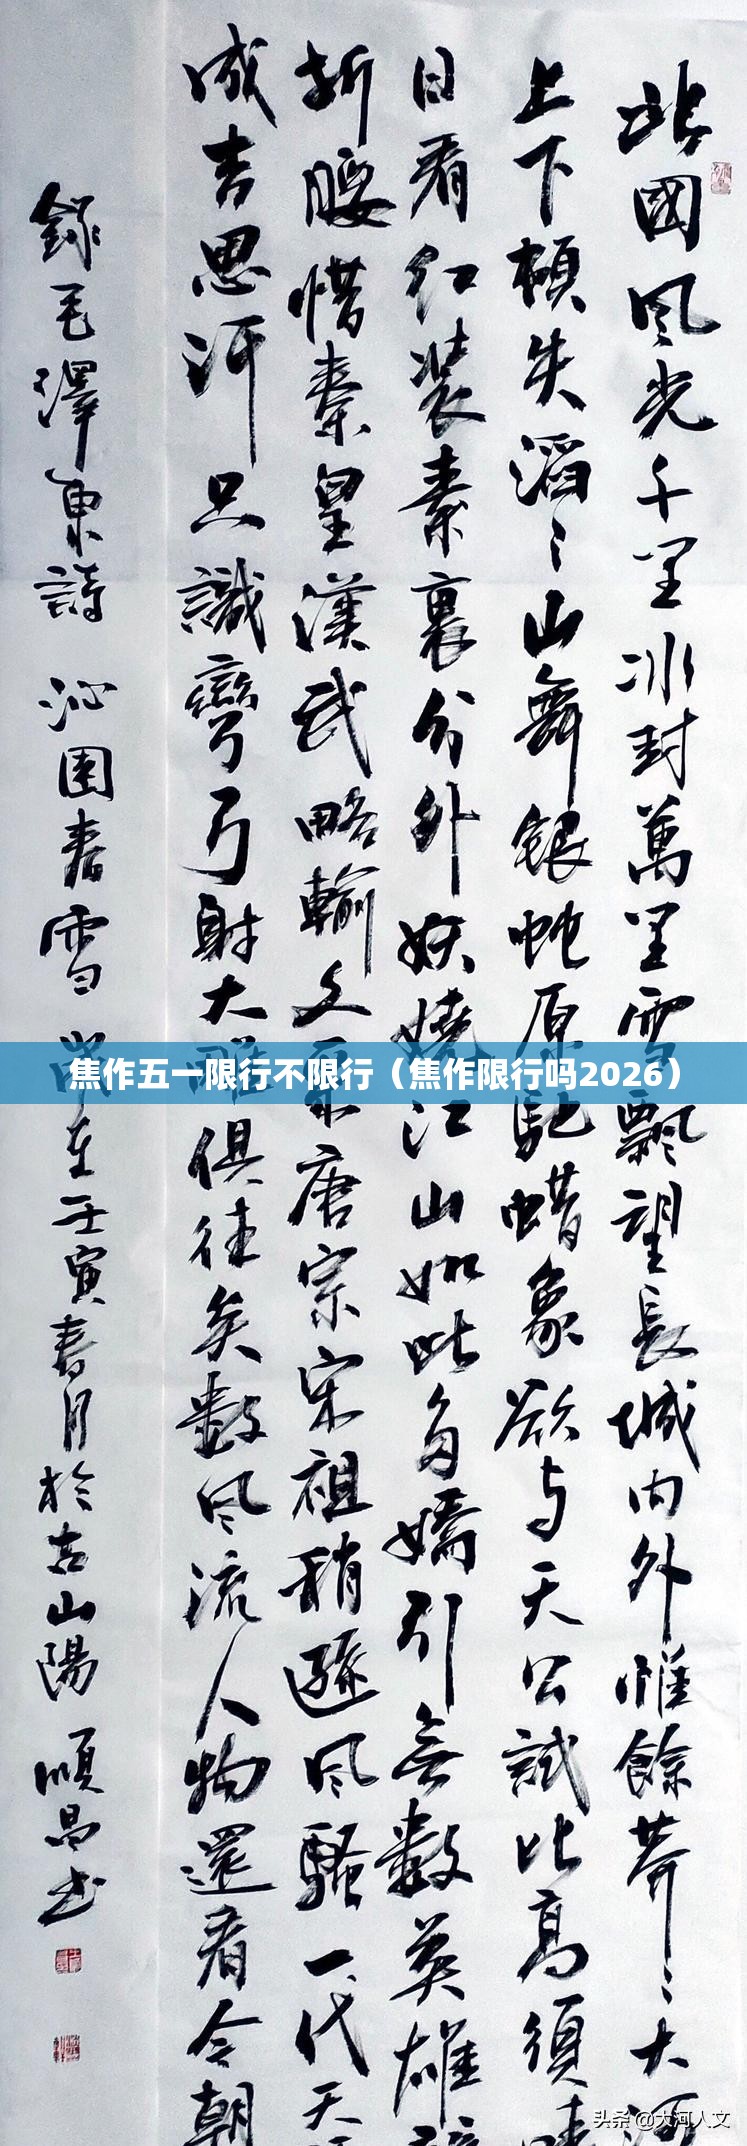 北國风光千里冰封萬里雪飄望長城内外惟餘莽〻大河
上下頓失滔〻山舞銀蛇原馳蜡象欲与天公試比高須晴
日看红装素裹分外妖嬈江山如此多嬌引無數英雄
折腰惜秦皇漢武略輸文采唐宗宋祖稍遜风騷一代天
成吉思汗只識彎弓射大雕俱往矣數风流人物還看今朝
錄毛澤東詩 沁園春雪 歲在壬寅春月於古山陽 順昌书
焦作五一限行不限行（焦作限行吗2026）
头条 @大河人文